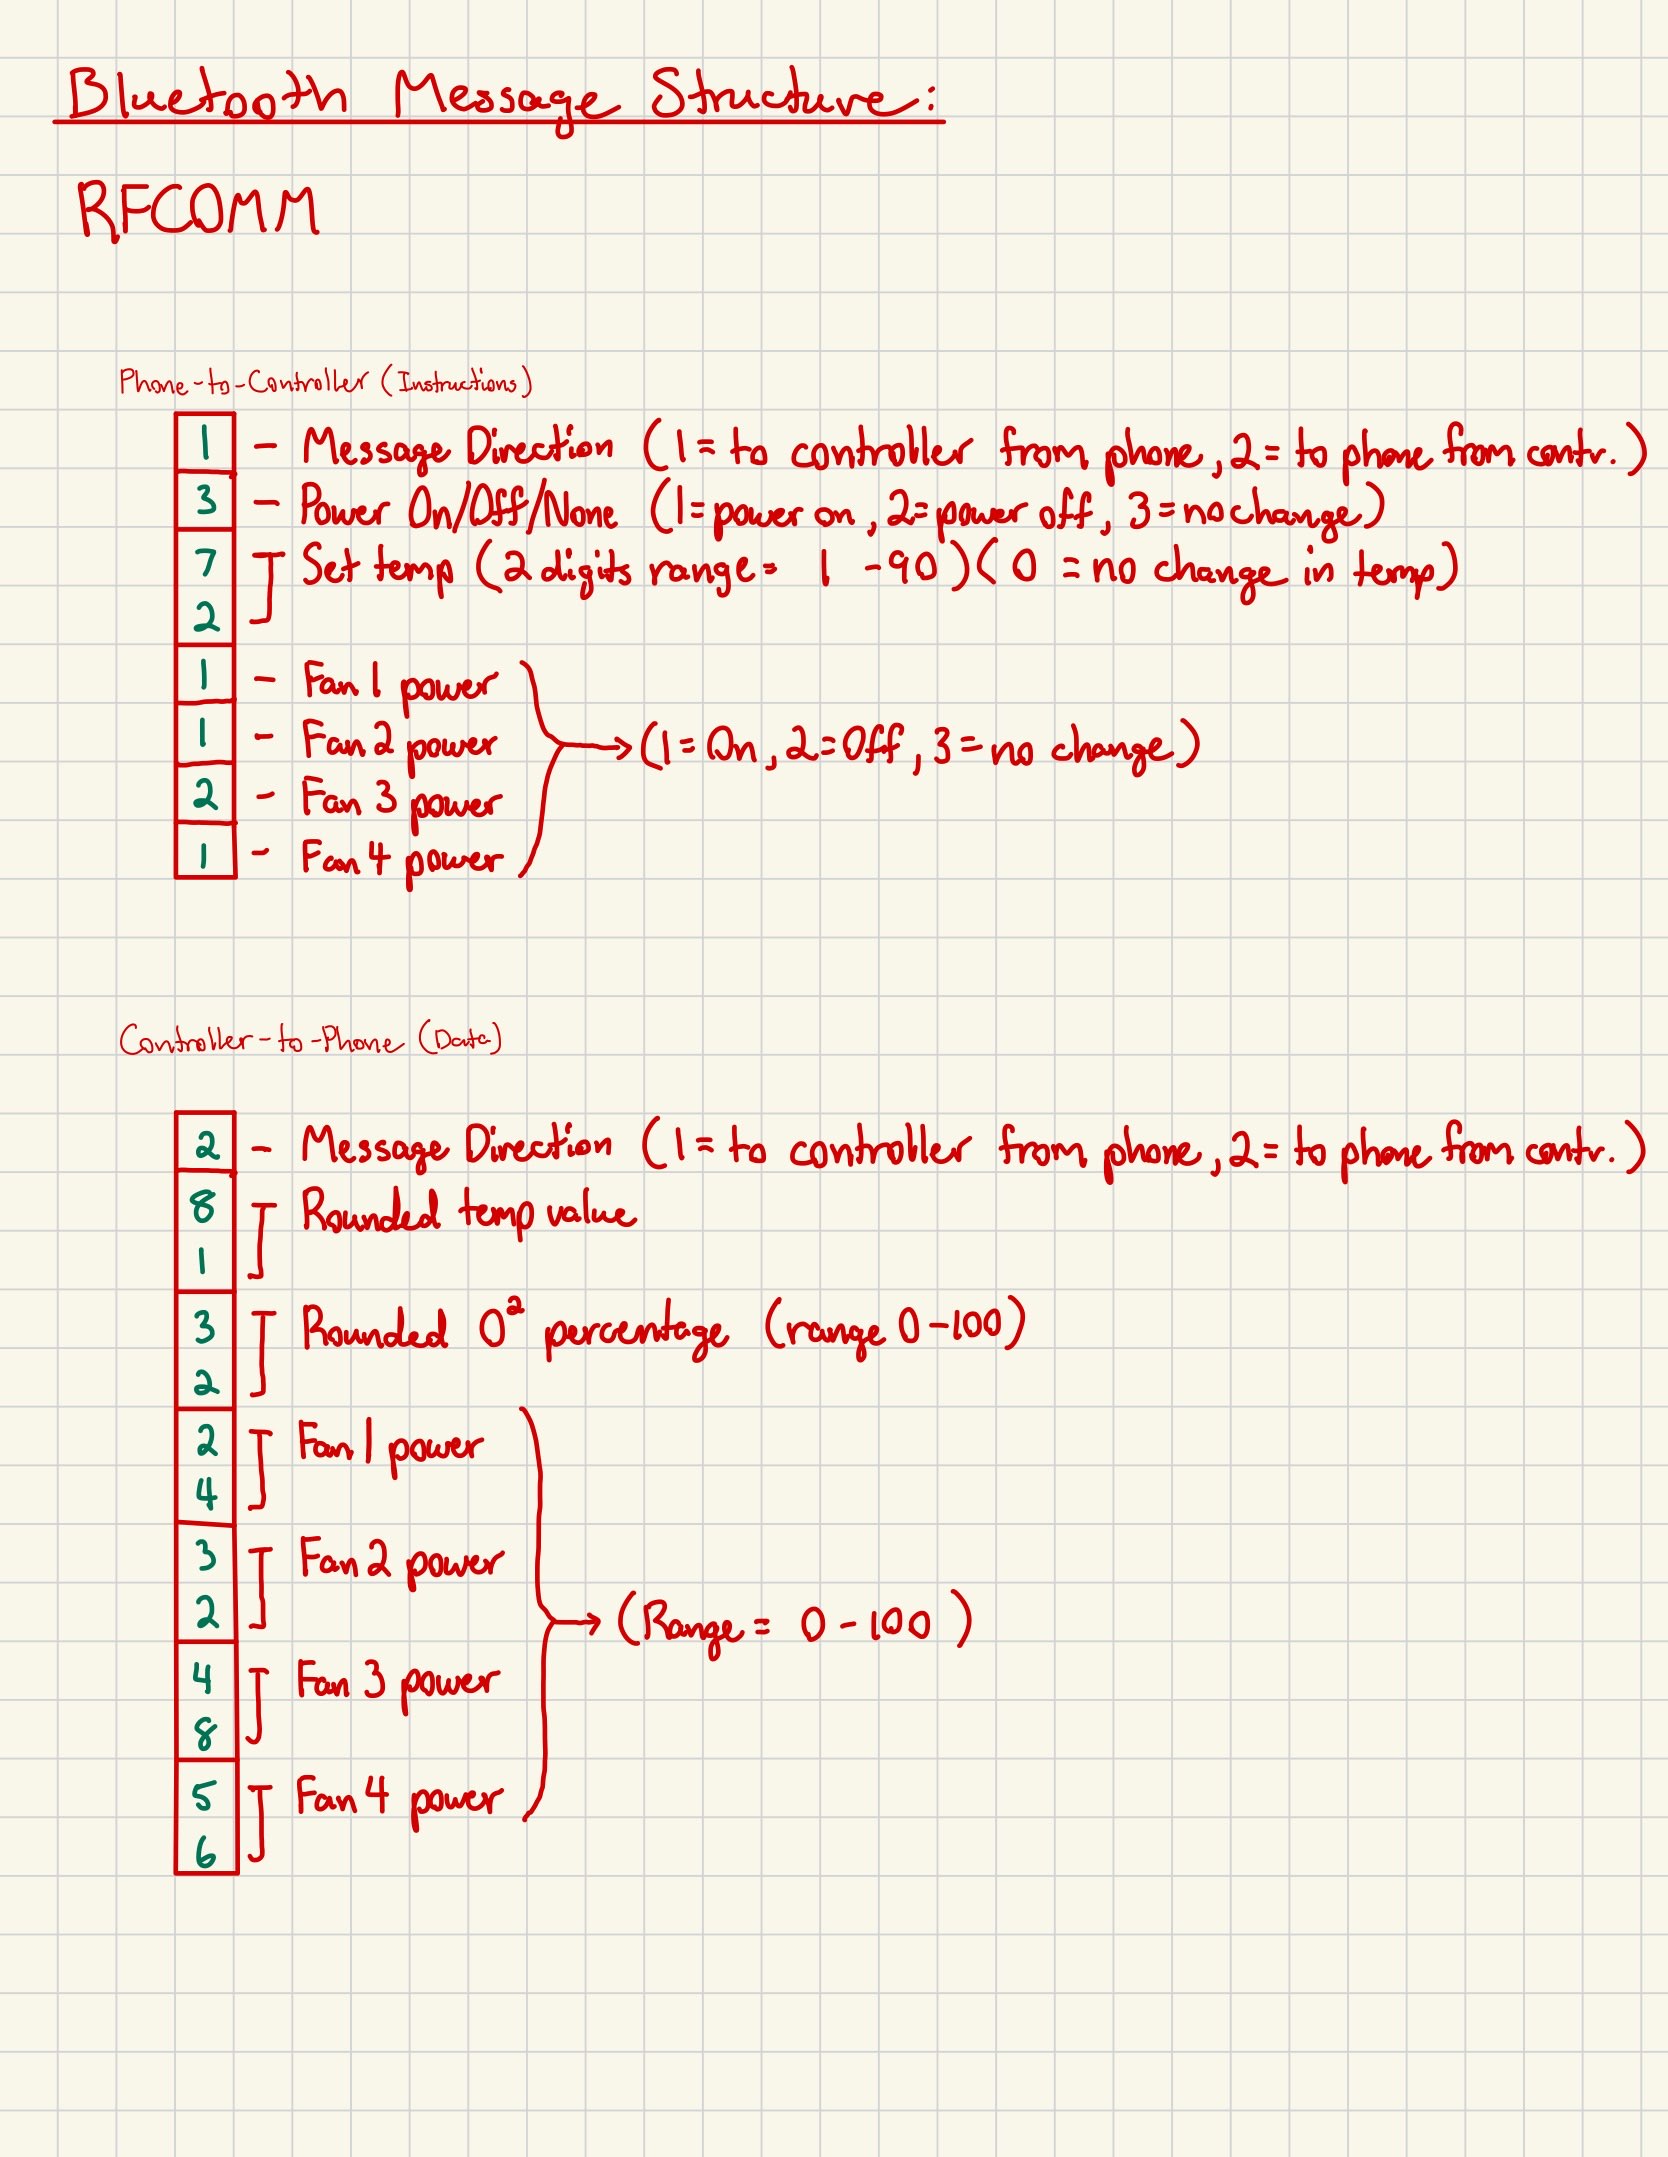 Bluetooth Message Structure:
RFCOMM
Phone-to-Controller (Instructions)
1 - Message Direction (1= to controller from phone, 2= to phone from contr.)
3 - Power On/Off/None (1=power on, 2=power off, 3=no change)
7 Set temp (2 digits range= 1 -90)(0 =no change in temp)
2
1 - Fan 1 power
1 - Fan 2 power (1=On, 2=Off, 3=no change)
2 - Fan 3 power
1 - Fan 4 power
Controller-to-Phone (Data)
2 - Message Direction (1= to controller from phone, 2= to phone from contr.)
8 Rounded temp value
1
3 Rounded O² percentage (range 0-100)
2
2 Fan 1 power
4
3 Fan 2 power
2 (Range= 0-100)
4 Fan 3 power
8
5 Fan 4 power
6